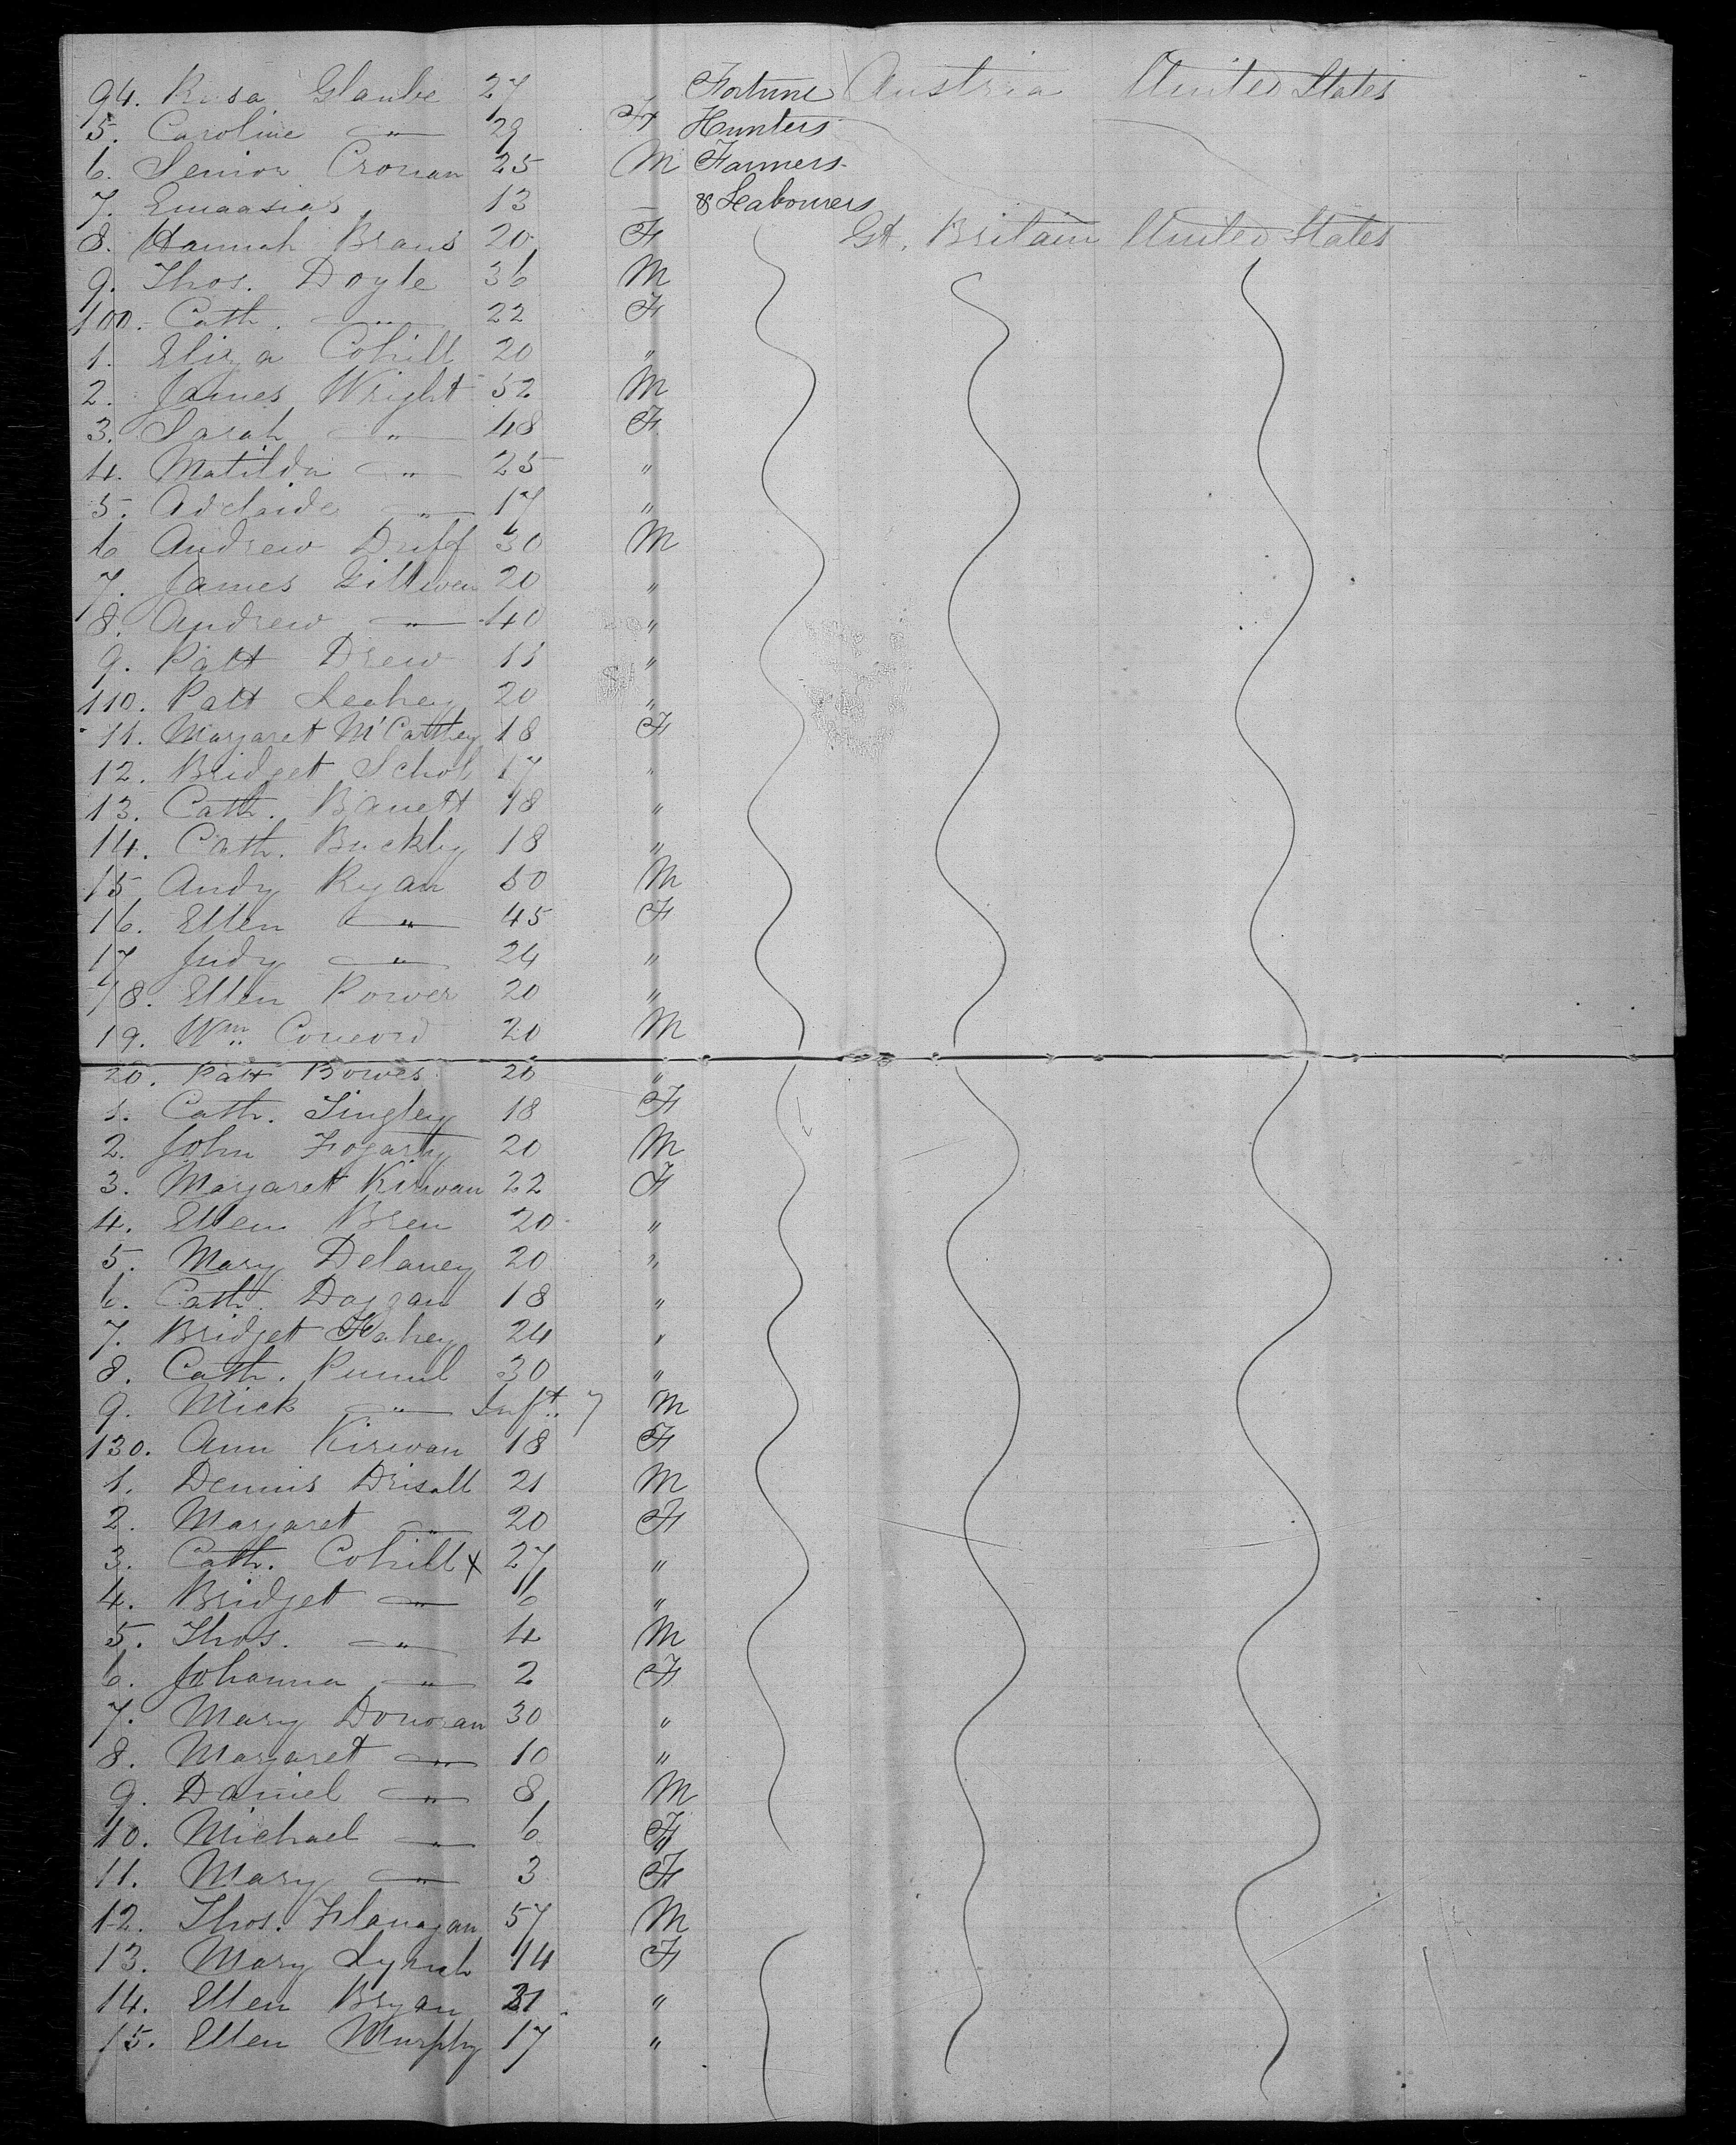 94. Rosa Glaube 27 Fortune Austria United States
5. Caroline " 29 F Hunters
6. Senior Cronan 25 M Farmers
7. 13 — & Leabourers
8. Hannah Braus 20 F Gt. Britain United States
9. Thos. Doyle 36 M
100. Cath. " 22 F
1. Eliza Cohill 20 "
2. James Wright 52 M
3. Sarah " 48 F
4. Matilda " 25 "
5. Adelaide " 17 "
6 Andrew Duff 30 M
7. James 20 "
8. Andrew " 40 "
9. Patt Drew 11 "
110. Patt Leahey 20 "
11. Margaret McCatthey 18 F
12. Bridget Schol 17 "
13. Cath. Banett 18 "
14. Cath. Buckley 18 "
15 Andy Ryan 50 M
16. Ellen " 45 F
17 Judy " 24 "
18. Ellen Power 20 "
19. Wm. Concord 20 M
20. Patt Bowes 20 "
1. Cath. Tingley 18 F
2. John Fogarty 20 M
3. Margarett Kirwan 22 F
4. Ellen Bren 20 "
5. Mary Delaney 20 "
6. Cath. Daggan 18 "
7. Bridgett Fahey 24 "
8. Cath. 30 "
9. Mick " Inft. 7 M
130. Ann Kirwan 18 F
1. Dennis Drisall 21 M
2. Margaret " 20 F
3. Cath. Cohill x 27 "
4. Bridget " "
5. Thos. " 4 M
6. Johanna " 2 F
7. Mary Donovan 30 "
8. Margaret " 10 "
9. Daniel " 8 M
10. Michael " 6 F
11. Mary " 3 F
12. Thos. Flanagan 57 M
13. Mary Lynch 14 F
14. Ellen Bryan 21 "
15. Ellen Murphy 17 "